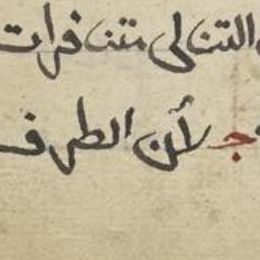 التتالى متنافرات
ج لان الطرف